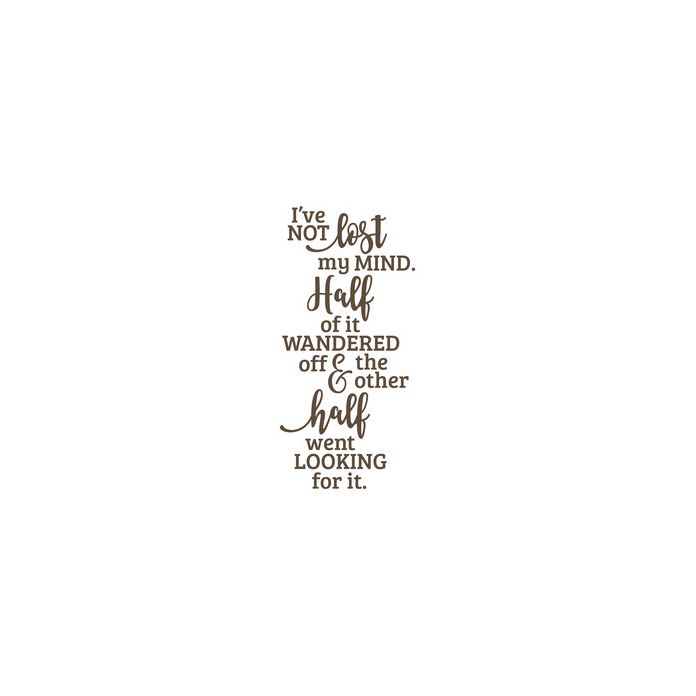 I've
NOT lost
my MIND.
Half
of it
WANDERED
off & the
other
half
went
LOOKING
for it.